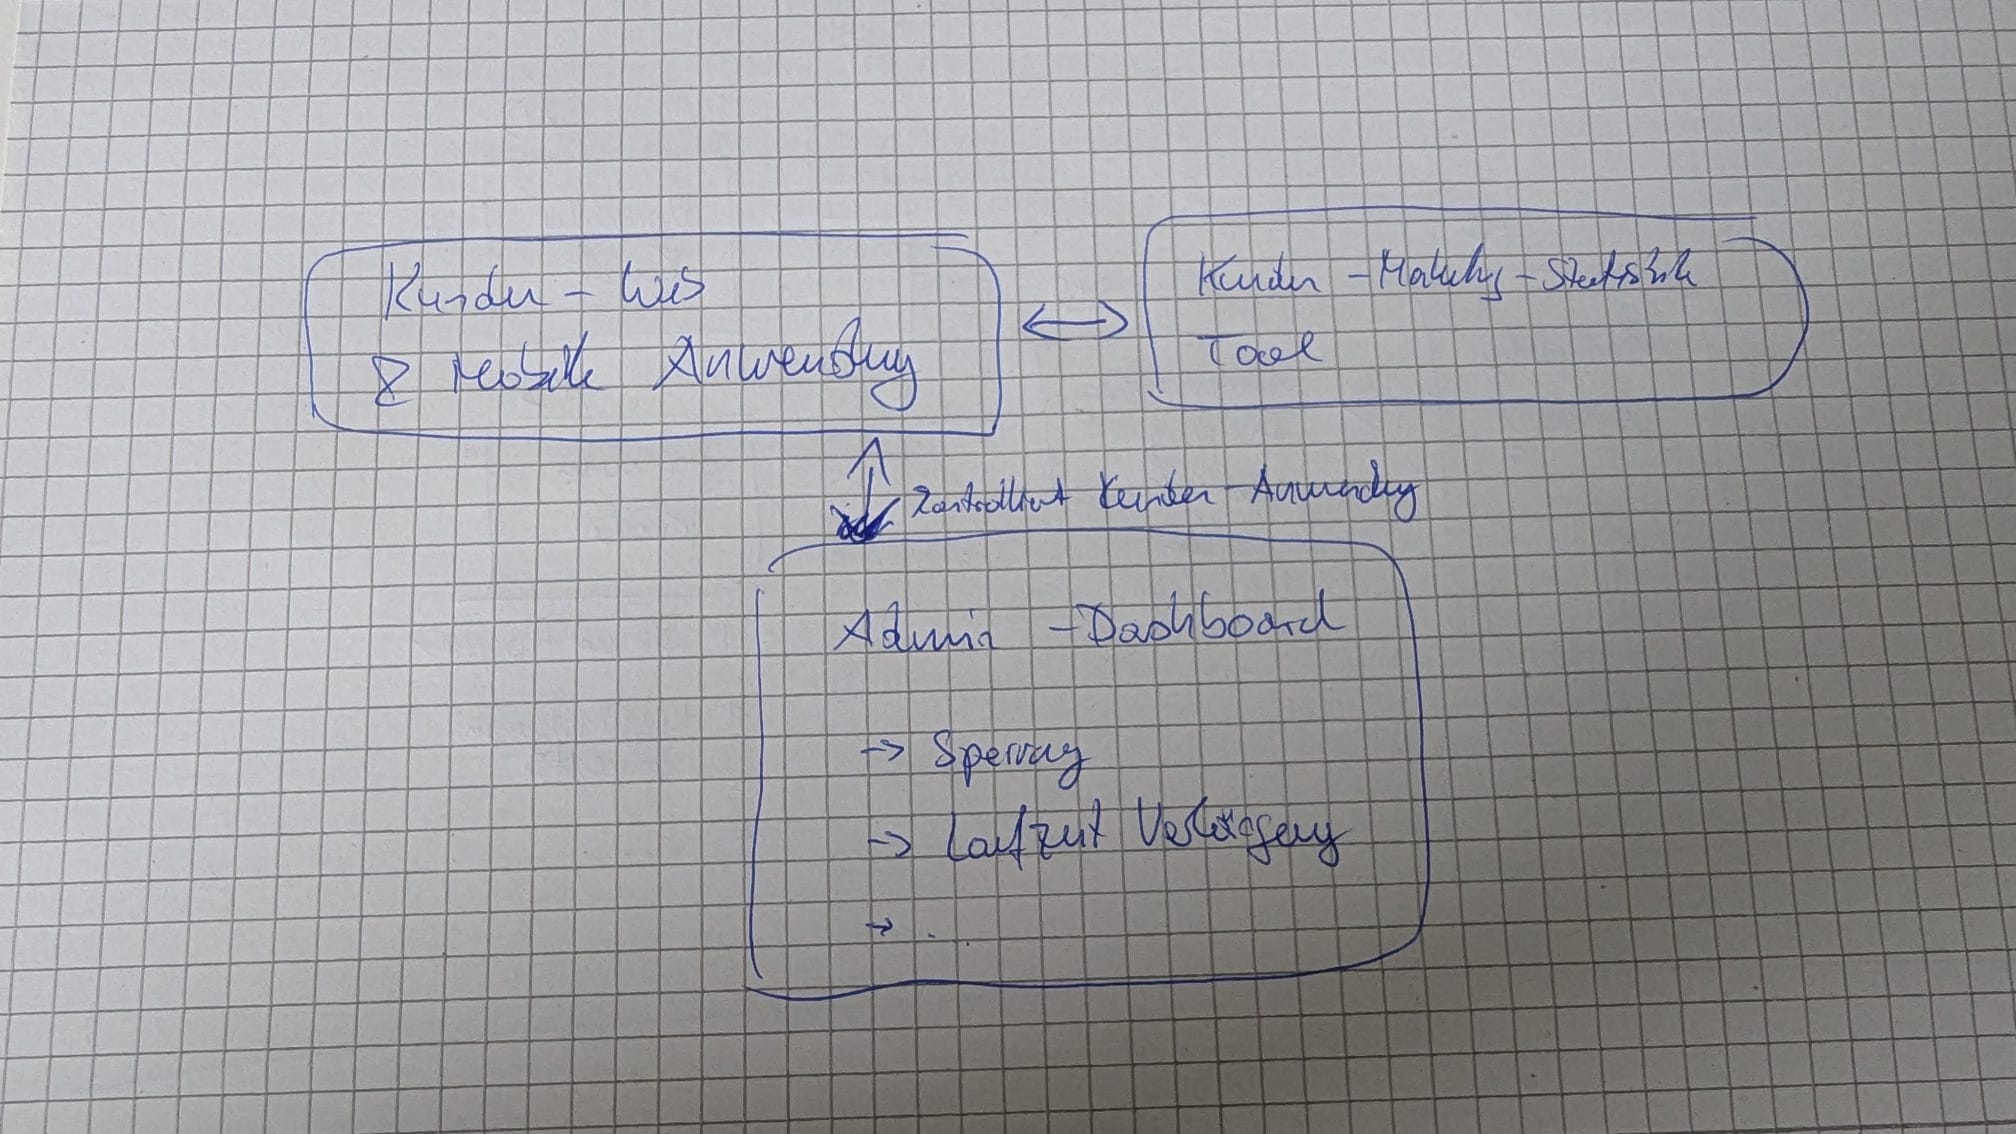 Kunden - Web
& Mobile Anwendung
Kunden - Marketing - Statistik
Tool
kontrolliert Kunden - Anwendung
Admin - Dashboard
-> Sperrung
-> Laufzeit Verlängerung
-> . .